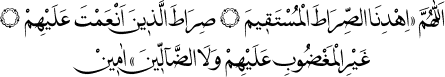 اَللّٰهُمَّ ﴿اِهْدِنَا الصِّرَاطَ الْمُسْتَقِيمَ ۝ صِرَاطَ الَّذِينَ اَنْعَمْتَ عَلَيْهِمْ ۝
غَيْرِ الْمَغْضُوبِ عَلَيْهِمْ وَلَا الضَّٓالِّينَ﴾ اٰمِينَ